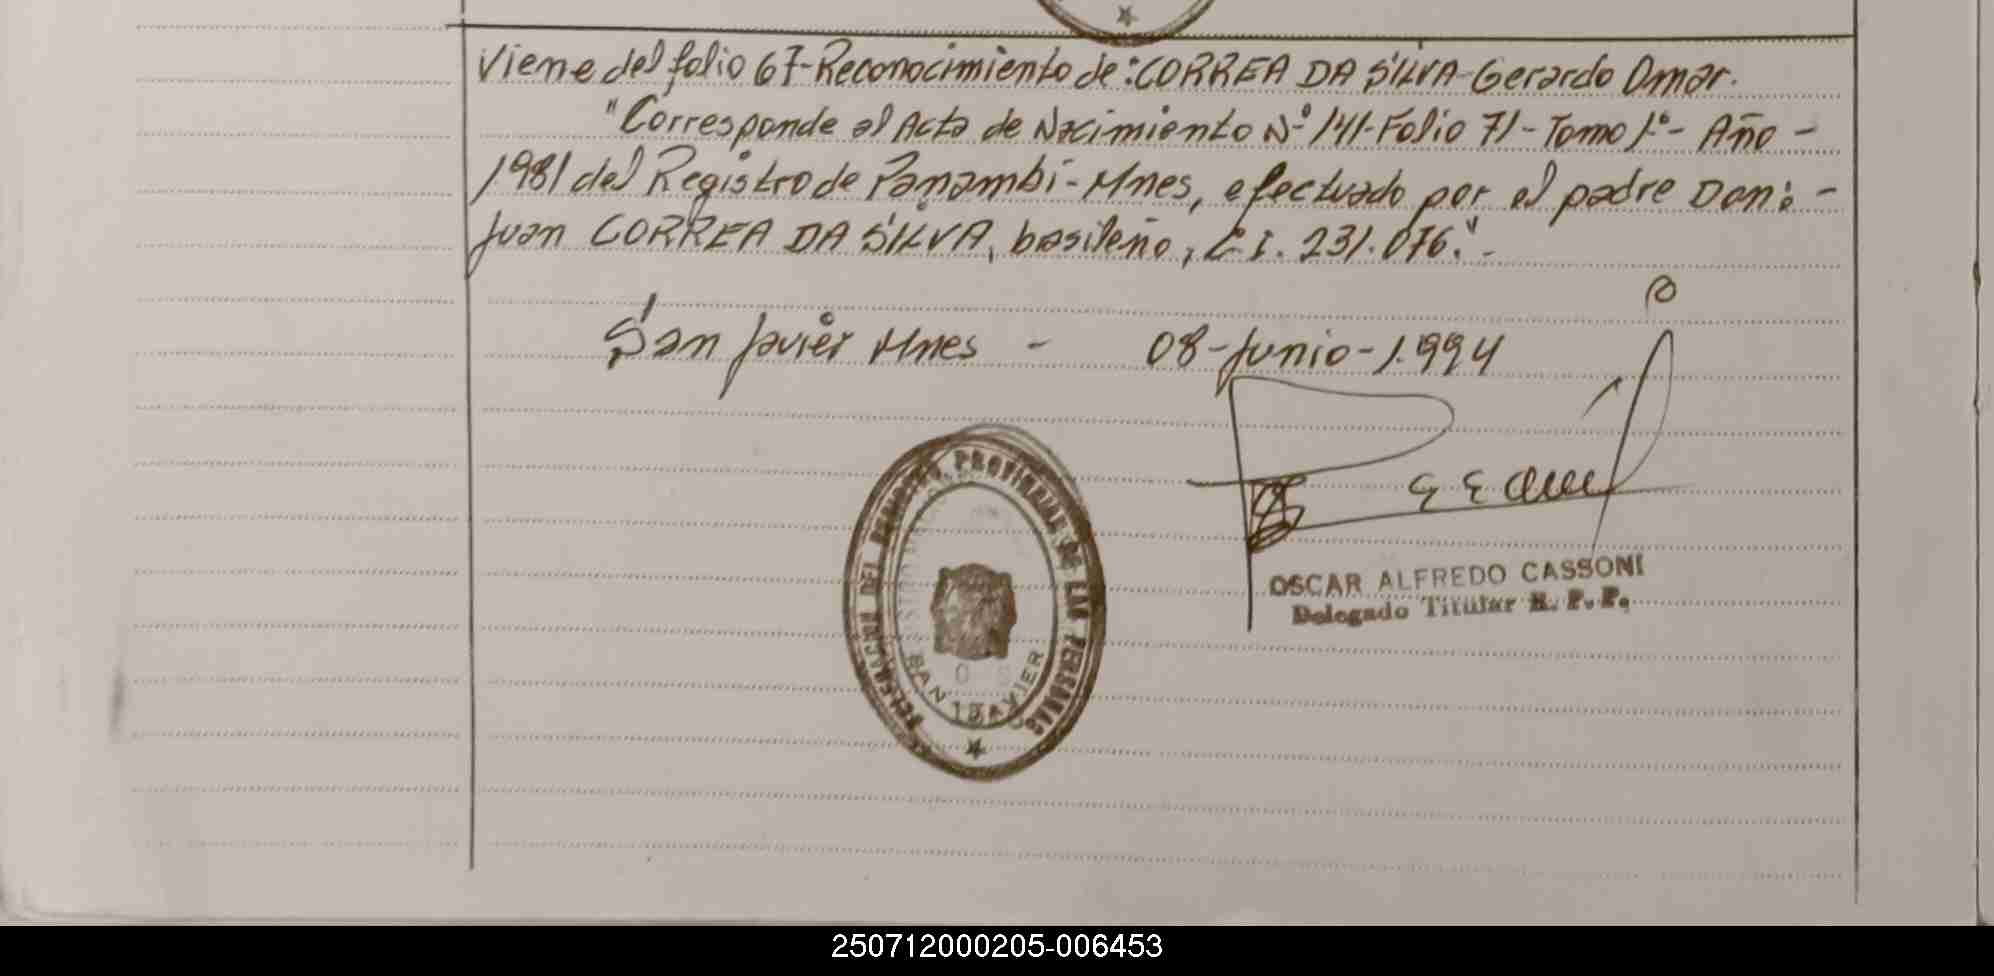 Viene del folio 67-Reconocimiento de: CORREA DA SILVA-Gerardo Omar.
"Corresponde al Acta de Nacimiento Nº 141-Folio 71-Tomo 1º- Año -
1981 del Registro de Panambi-Mnes, efectuado por el padre Don: -
Juan CORREA DA SILVA, basileño, C.I. 231.076."-
San Javier Mnes - 08-Junio-1.994
DELEGACION DEL REGISTRO PROVINCIAL DE LAS PERSONAS
SAN JAVIER
OSCAR ALFREDO CASSONI
Delegado Titular R. P. P.
250712000205-006453